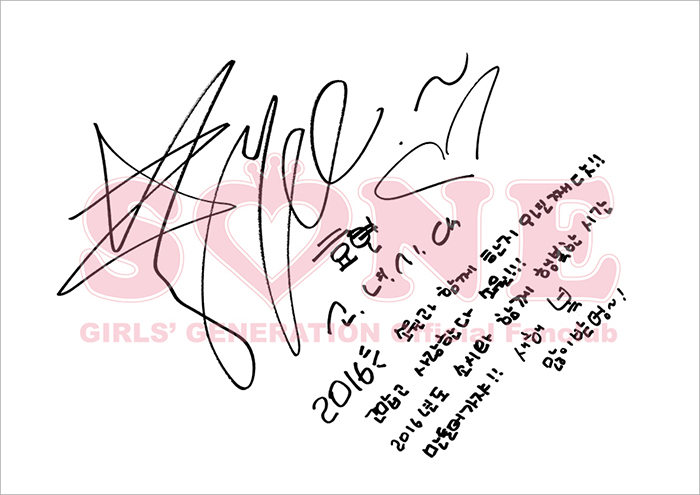 S♥NE
GIRLS' GENERATION Official Fanclub
2016년
소원과 함께 한지 10년째다!!
고맙고 사랑한다 소원!!!
2016년도 소시랑 함께 행복한 시간
만들어가자!! 새해 복
많이받엉~!